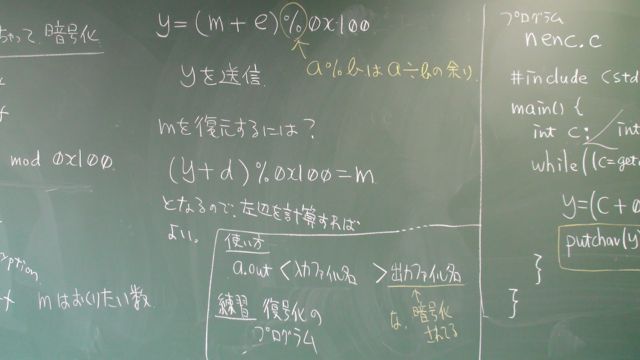 ちゃって、暗号化
mod 0x100
ryption
mはおくりたい数
y=(m+e)%0x100
a%bはa÷bの余り
yを送信
mを復元するには?
(y+d)%0x100=m
となるので、左辺を計算すれば
よい。
使い方
a.out <入力ファイル名 >出力ファイル名
練習 復号化の
プログラム
暗号化
されてる
プログラム
nenc.c
#include <std
main() {
int c; int
while((c=get
y=(c+
putchar(y
}
}